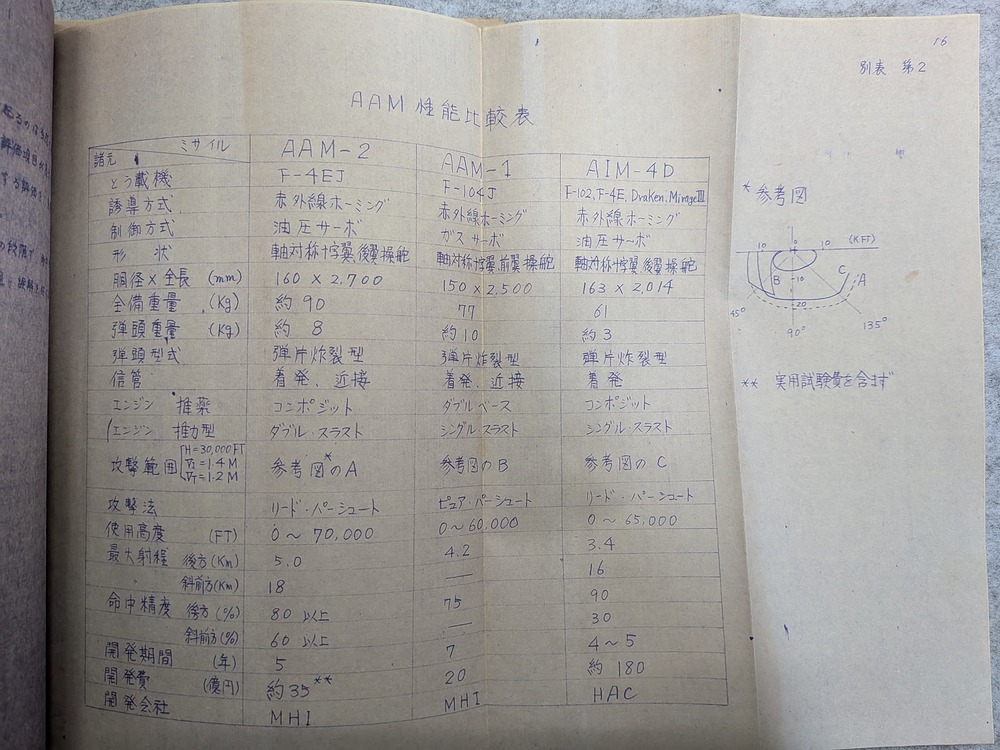 16
別表 第2
AAM 性能比較表
諸元 ミサイル AAM-2 AAM-1 AIM-4D
とう載機 F-4EJ F-104J F-102, F-4E, Draken, MirageⅢ
誘導方式 赤外線ホーミング 赤外線ホーミング 赤外線ホーミング
制御方式 油圧サーボ ガスサーボ 油圧サーボ
形状 軸対称十字翼,後翼操舵 軸対称十字翼,前翼操舵 軸対称十字翼,後翼操舵
胴径×全長 (mm) 160 × 2,700 150 × 2,500 163 × 2,014
全備重量 (Kg) 約 90 77 61
弾頭重量 (Kg) 約 8 約10 約3
弾頭型式 弾片炸裂型 弾片炸裂型 弾片炸裂型
信管 着発、近接 着発、近接 着発
エンジン 推薬 コンポジット ダブルベース コンポジット
エンジン 推力型 ダブル・スラスト シングル・スラスト シングル・スラスト
攻撃範囲 H=30,000FT 参考図*のA 参考図のB 参考図のC
=1.4M
=1.2M
攻撃法 リード・パーシュート ピュア・パーシュート リード・パーシュート
使用高度 (FT) 0〜70,000 0〜60,000 0〜65,000
最大射程 後方(Km) 5.0 4.2 3.4
斜前方(Km) 18 — 16
命中精度 後方(%) 80 以上 75 90
斜前方(%) 60 以上 — 30
開発期間 (年) 5 7 4〜5
開発費 (億円) 約35** 20 約180
開発会社 MHI MHI HAC
* 参考図
10 10 10 (KFT)
B C A
10
20
45° 90° 135°
** 実用試験費を含まず